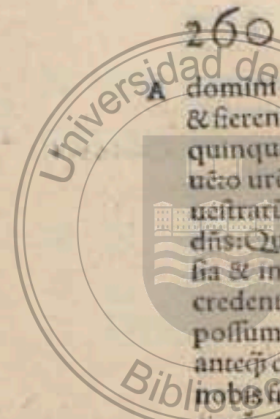 260
A domini
& fieren
quinqu
uēto urē
ueſtratū
dn̄s: Qu
ſia & in
credent
poſſum
anteq̄ c
nobis
Universidad de
Biblio